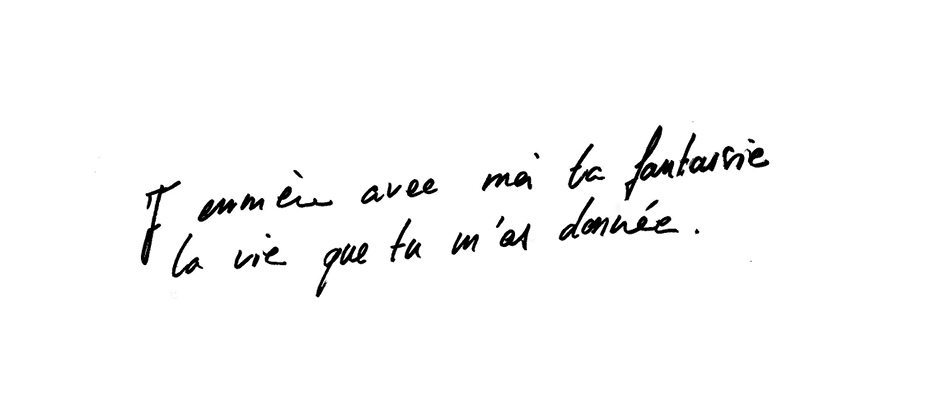 J emmène avec moi ta fantaisie
la vie que tu m'as donnée.